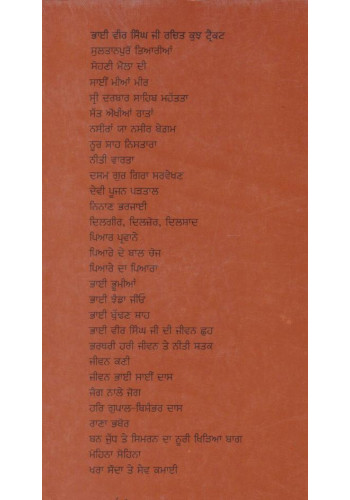 ਭਾਈ ਵੀਰ ਸਿੰਘ ਜੀ ਰਚਿਤ ਕੁਝ ਟ੍ਰੈਕਟ
ਸੁਲਤਾਨਪੁਰੋਂ ਤਿਆਰੀਆਂ
ਸੋਹਣੀ ਮੌਲਾ ਦੀ
ਸਾਈਂ ਮੀਆਂ ਮੀਰ
ਸ੍ਰੀ ਦਰਬਾਰ ਸਾਹਿਬ ਮਹੱਤਤਾ
ਸੱਤ ਔਖੀਆਂ ਰਾਤਾਂ
ਨਸੀਰਾਂ ਯਾ ਨਸੀਰ ਬੇਗਮ
ਨੂਰ ਸ਼ਾਹ ਨਿਸਤਾਰਾ
ਨੀਤੀ ਵਾਰਤਾ
ਦਸਮ ਗੁਰ ਗਿਰਾ ਸਰਵੇਖਣ
ਦੇਵੀ ਪੂਜਨ ਪੜਤਾਲ
ਨਿਨਾਣ ਭਰਜਾਈ
ਦਿਲਗੀਰ, ਦਿਲਜ਼ੋਰ, ਦਿਲਸ਼ਾਦ
ਪਿਆਰ ਪ੍ਰਵਾਨੇ
ਪਿਆਰੇ ਦੇ ਬਾਲ ਚੋਜ
ਪਿਆਰੇ ਦਾ ਪਿਆਰਾ
ਭਾਈ ਭੂਮੀਆਂ
ਭਾਈ ਝੰਡਾ ਜੀਓ
ਭਾਈ ਖ੍ਵੰਖਣ ਸ਼ਾਹ
ਭਾਈ ਵੀਰ ਸਿੰਘ ਜੀ ਦੀ ਜੀਵਨ ਛੁਹ
ਭਰਥਰੀ ਹਰੀ ਜੀਵਨ ਤੇ ਨੀਤੀ ਸ਼ਤਕ
ਜੀਵਨ ਕਣੀ
ਜੀਵਨ ਭਾਈ ਸਾਈਂ ਦਾਸ
ਜੋਗ ਨਾਲੇ ਭੋਗ
ਹਰਿ ਗੁਪਾਲ-ਬਿਸ਼ੰਭਰ ਦਾਸ
ਰਾਣਾ ਭਬੋਰ
ਬਨ ਜੁੱਧ ਤੇ ਸਿਮਰਨ ਦਾ ਨੂਰੀ ਖਿੜਿਆ ਬਾਗ
ਮਹਿਨਾ ਸੋਹਿਨਾ
ਖਰਾ ਸੌਦਾ ਤੇ ਸੇਵ ਕਮਾਈ